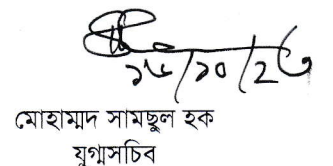 ১৬/১০/২৩
মোহাম্মদ সামছুল হক
যুগ্মসচিব